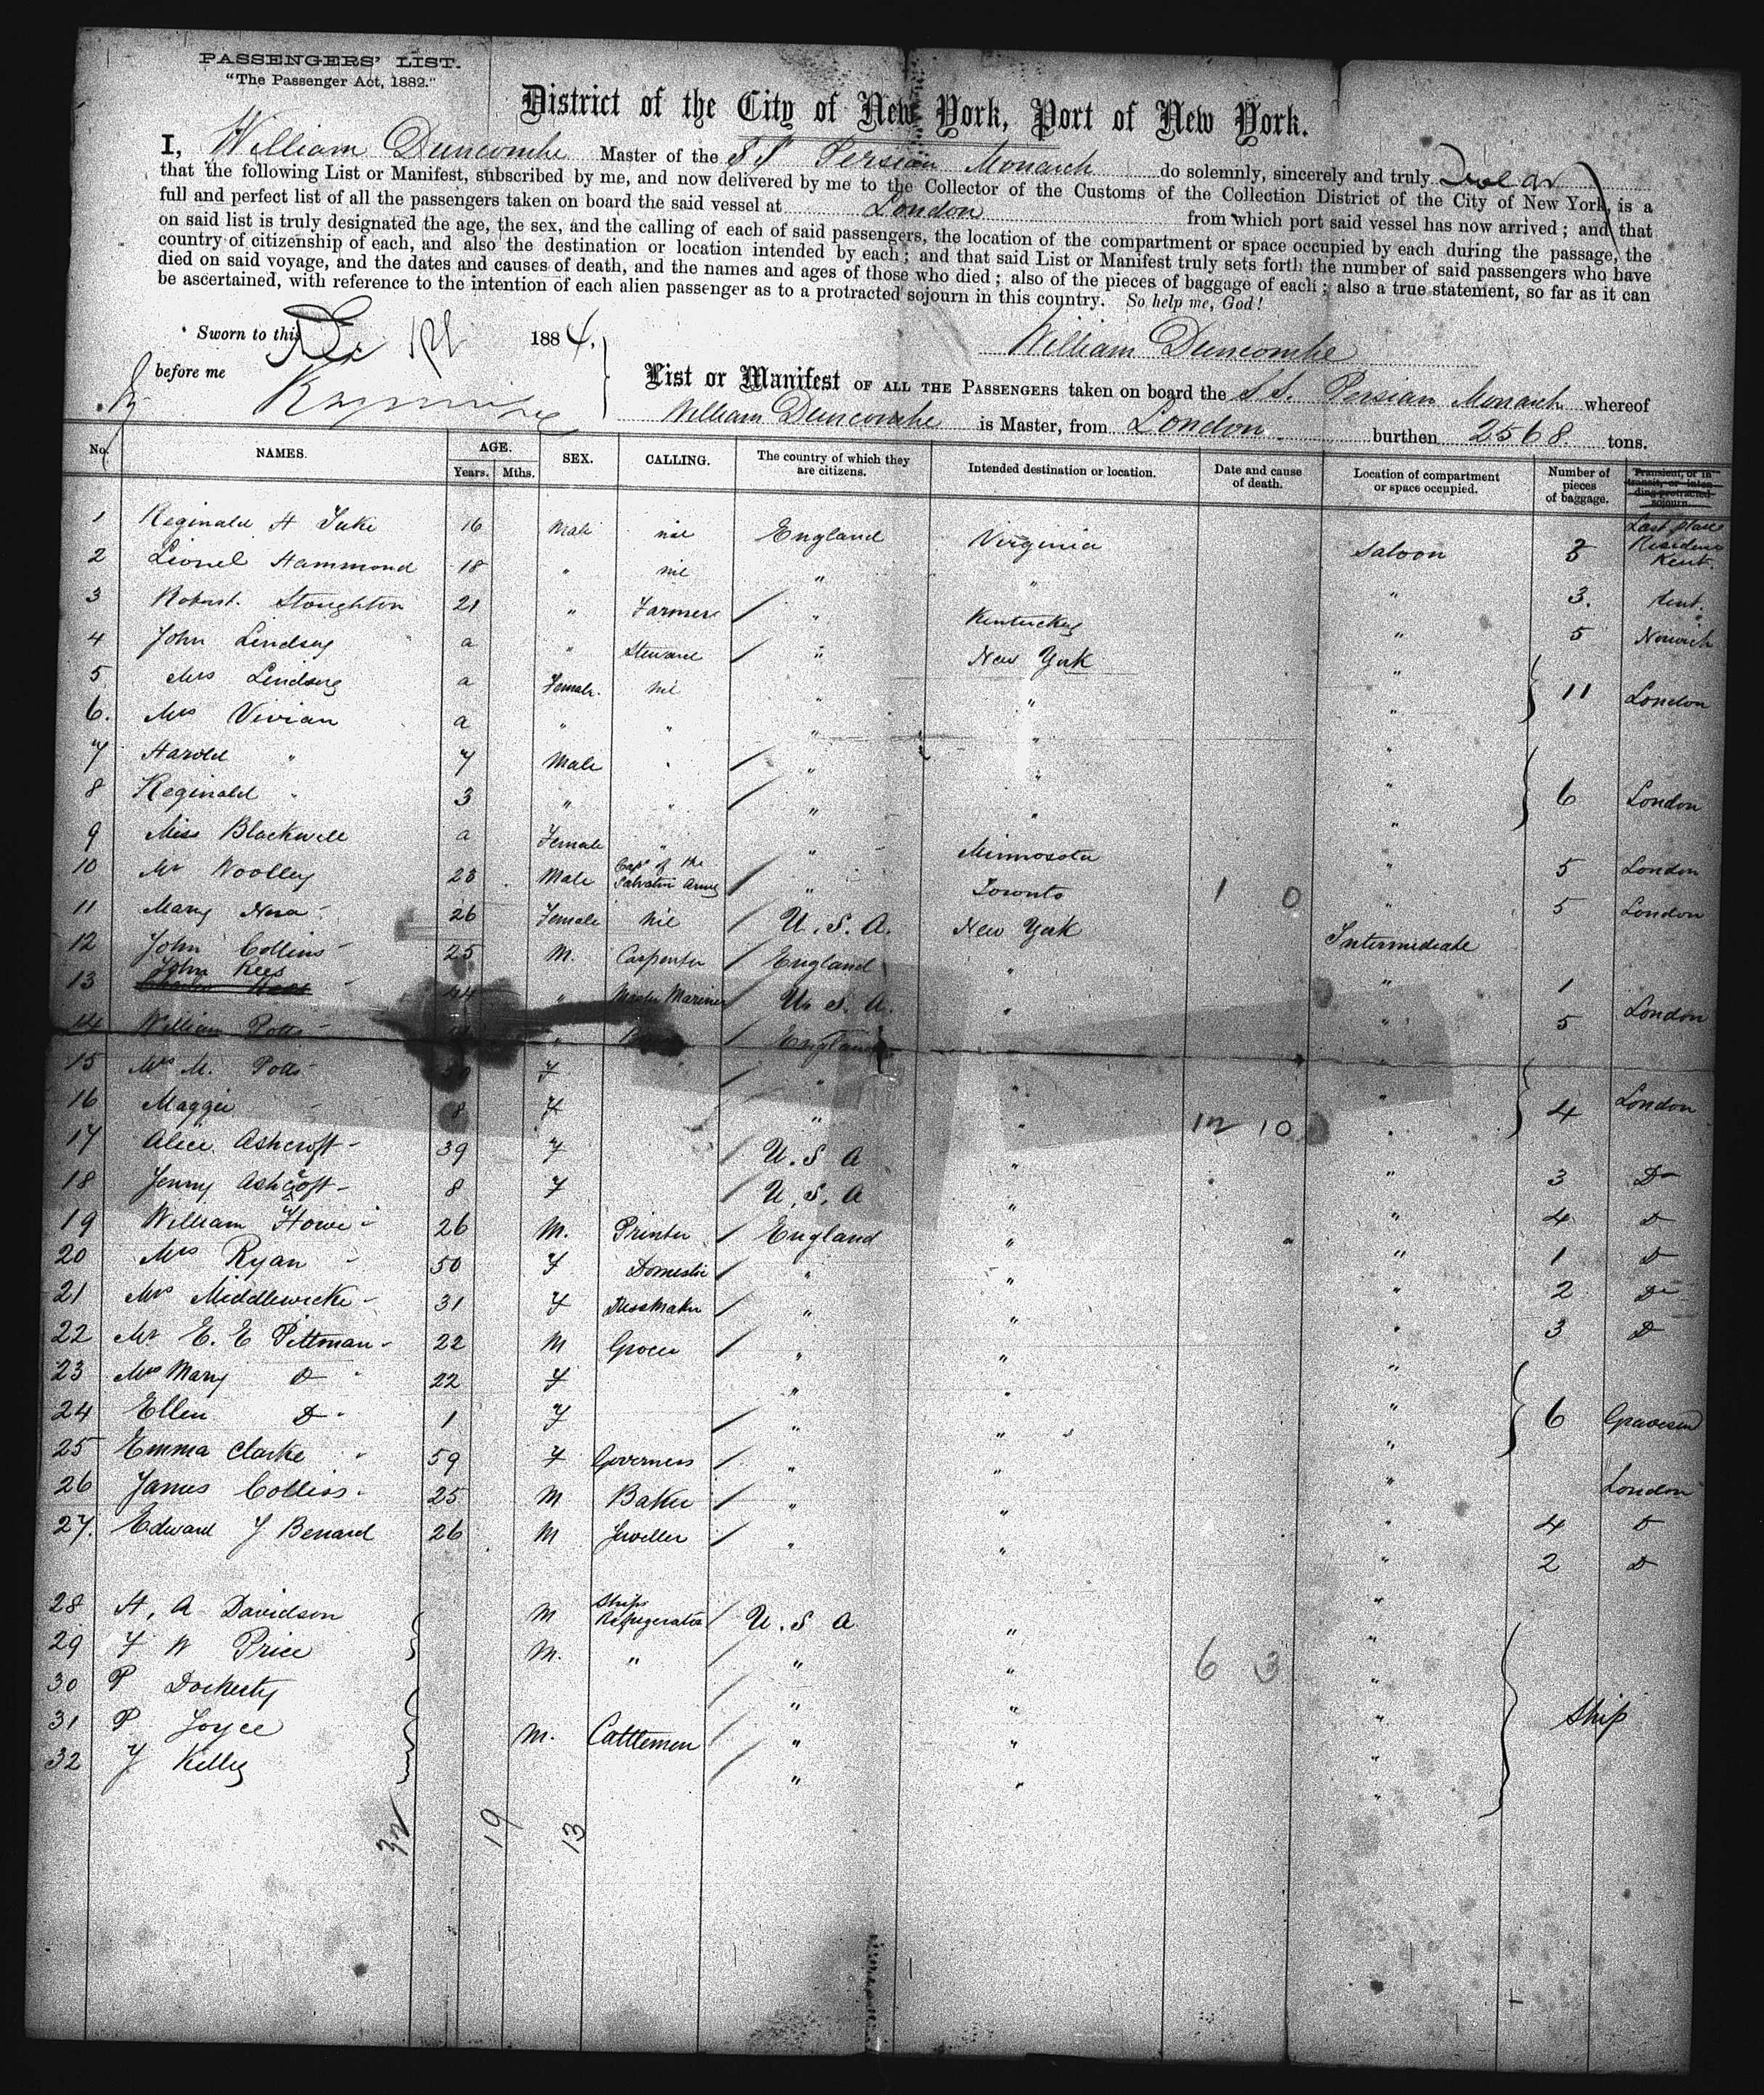 PASSENGERS' LIST.
"The Passenger Act, 1882."
District of the City of New York, Port of New York.
I, William Duncombe Master of the SS Persian Monarch do solemnly, sincerely and truly swear
that the following List or Manifest, subscribed by me, and now delivered by me to the Collector of the Customs of the Collection District of the City of New York, is a
full and perfect list of all the passengers taken on board the said vessel at London from which port said vessel has now arrived; and that
on said list is truly designated the age, the sex, and the calling of each of said passengers, the location of the compartment or space occupied by each during the passage, the
country of citizenship of each, and also the destination or location intended by each; and that said List or Manifest truly sets forth the number of said passengers who have
died on said voyage, and the dates and causes of death, and the names and ages of those who died; also of the pieces of baggage of each; also a true statement, so far as it can
be ascertained, with reference to the intention of each alien passenger as to a protracted sojourn in this country. So help me, God!
Sworn to this Dec 1884.
William Duncombe
before me
List or Manifest OF ALL THE PASSENGERS taken on board the S.S. Persian Monarch whereof
William Duncombe is Master, from London burthen 2568 tons.
No. NAMES. AGE. Years. Mths. SEX. CALLING. The country of which they are citizens. Intended destination or location. Date and cause of death. Location of compartment or space occupied. Number of pieces of baggage. Transient, or in transit, or intending protracted sojourn.
Last place Residence
1 Reginald H 16 Male nil England Virginia Saloon 3 Kent.
2 Lionel Hammond 18 " nil " " " 3. Kent.
3 Robert Stoughton 21 " Farmer " Kentucky " 5 Norwich
4 John Lindsey a " Steward " New York "
5 Mrs Lindsey a Female. nil " " " 11 London
6. Mrs Vivian a " " " " "
7 Harold " 7 Male " " " "
8 Reginald " 3 " " " " " 6 London
9 Miss Blackwell a Female " " Minnosota " 5 London
10 Mr Woolley 23 Male Capt of the Salvation Army " Toronto 1 0 " 5 London
11 Mary 26 Female nil U.S.A. New York Intermediate
12 John Collins 25 M. Carpenter England " " 1
13 John Rees 44 " Master Mariner U.S.A. " " 5 London
14 William Potts " England " "
15 Mrs M. Potts F " " "
16 Maggie " 8 F " " 12 10 " 4 London
17 Alice Ashcroft 39 F U.S A " " 3 Do
18 Jenny Ashcroft 8 F U.S.A " " 4 D
19 William Howe 26 M. Printer England " " 1 D
20 Mrs Ryan 50 F Domestic " " " 2 Do
21 Mrs Middlewicke 31 F Dressmaker " " " 3 D
22 Mr E. E Pittman 22 M Grocer " " "
23 Mrs Mary D 22 F " " "
24 Ellen D 1 F " " " 6 Gravesend
25 Emma Clarke 59 F Governess " " " London
26 James Collins 25 M Baker " " " 4 D
27. Edward J Benard 26 M Jeweller " " " 2 D
28 H. A Davidson M Ships Refrigerator U.S A " "
29 F W Price M. " " " 6 3 "
30 P Dockerty " " "
31 P Joyce M. Cattlemen " " " Ship
32 J Kelley " " "
32 19 13